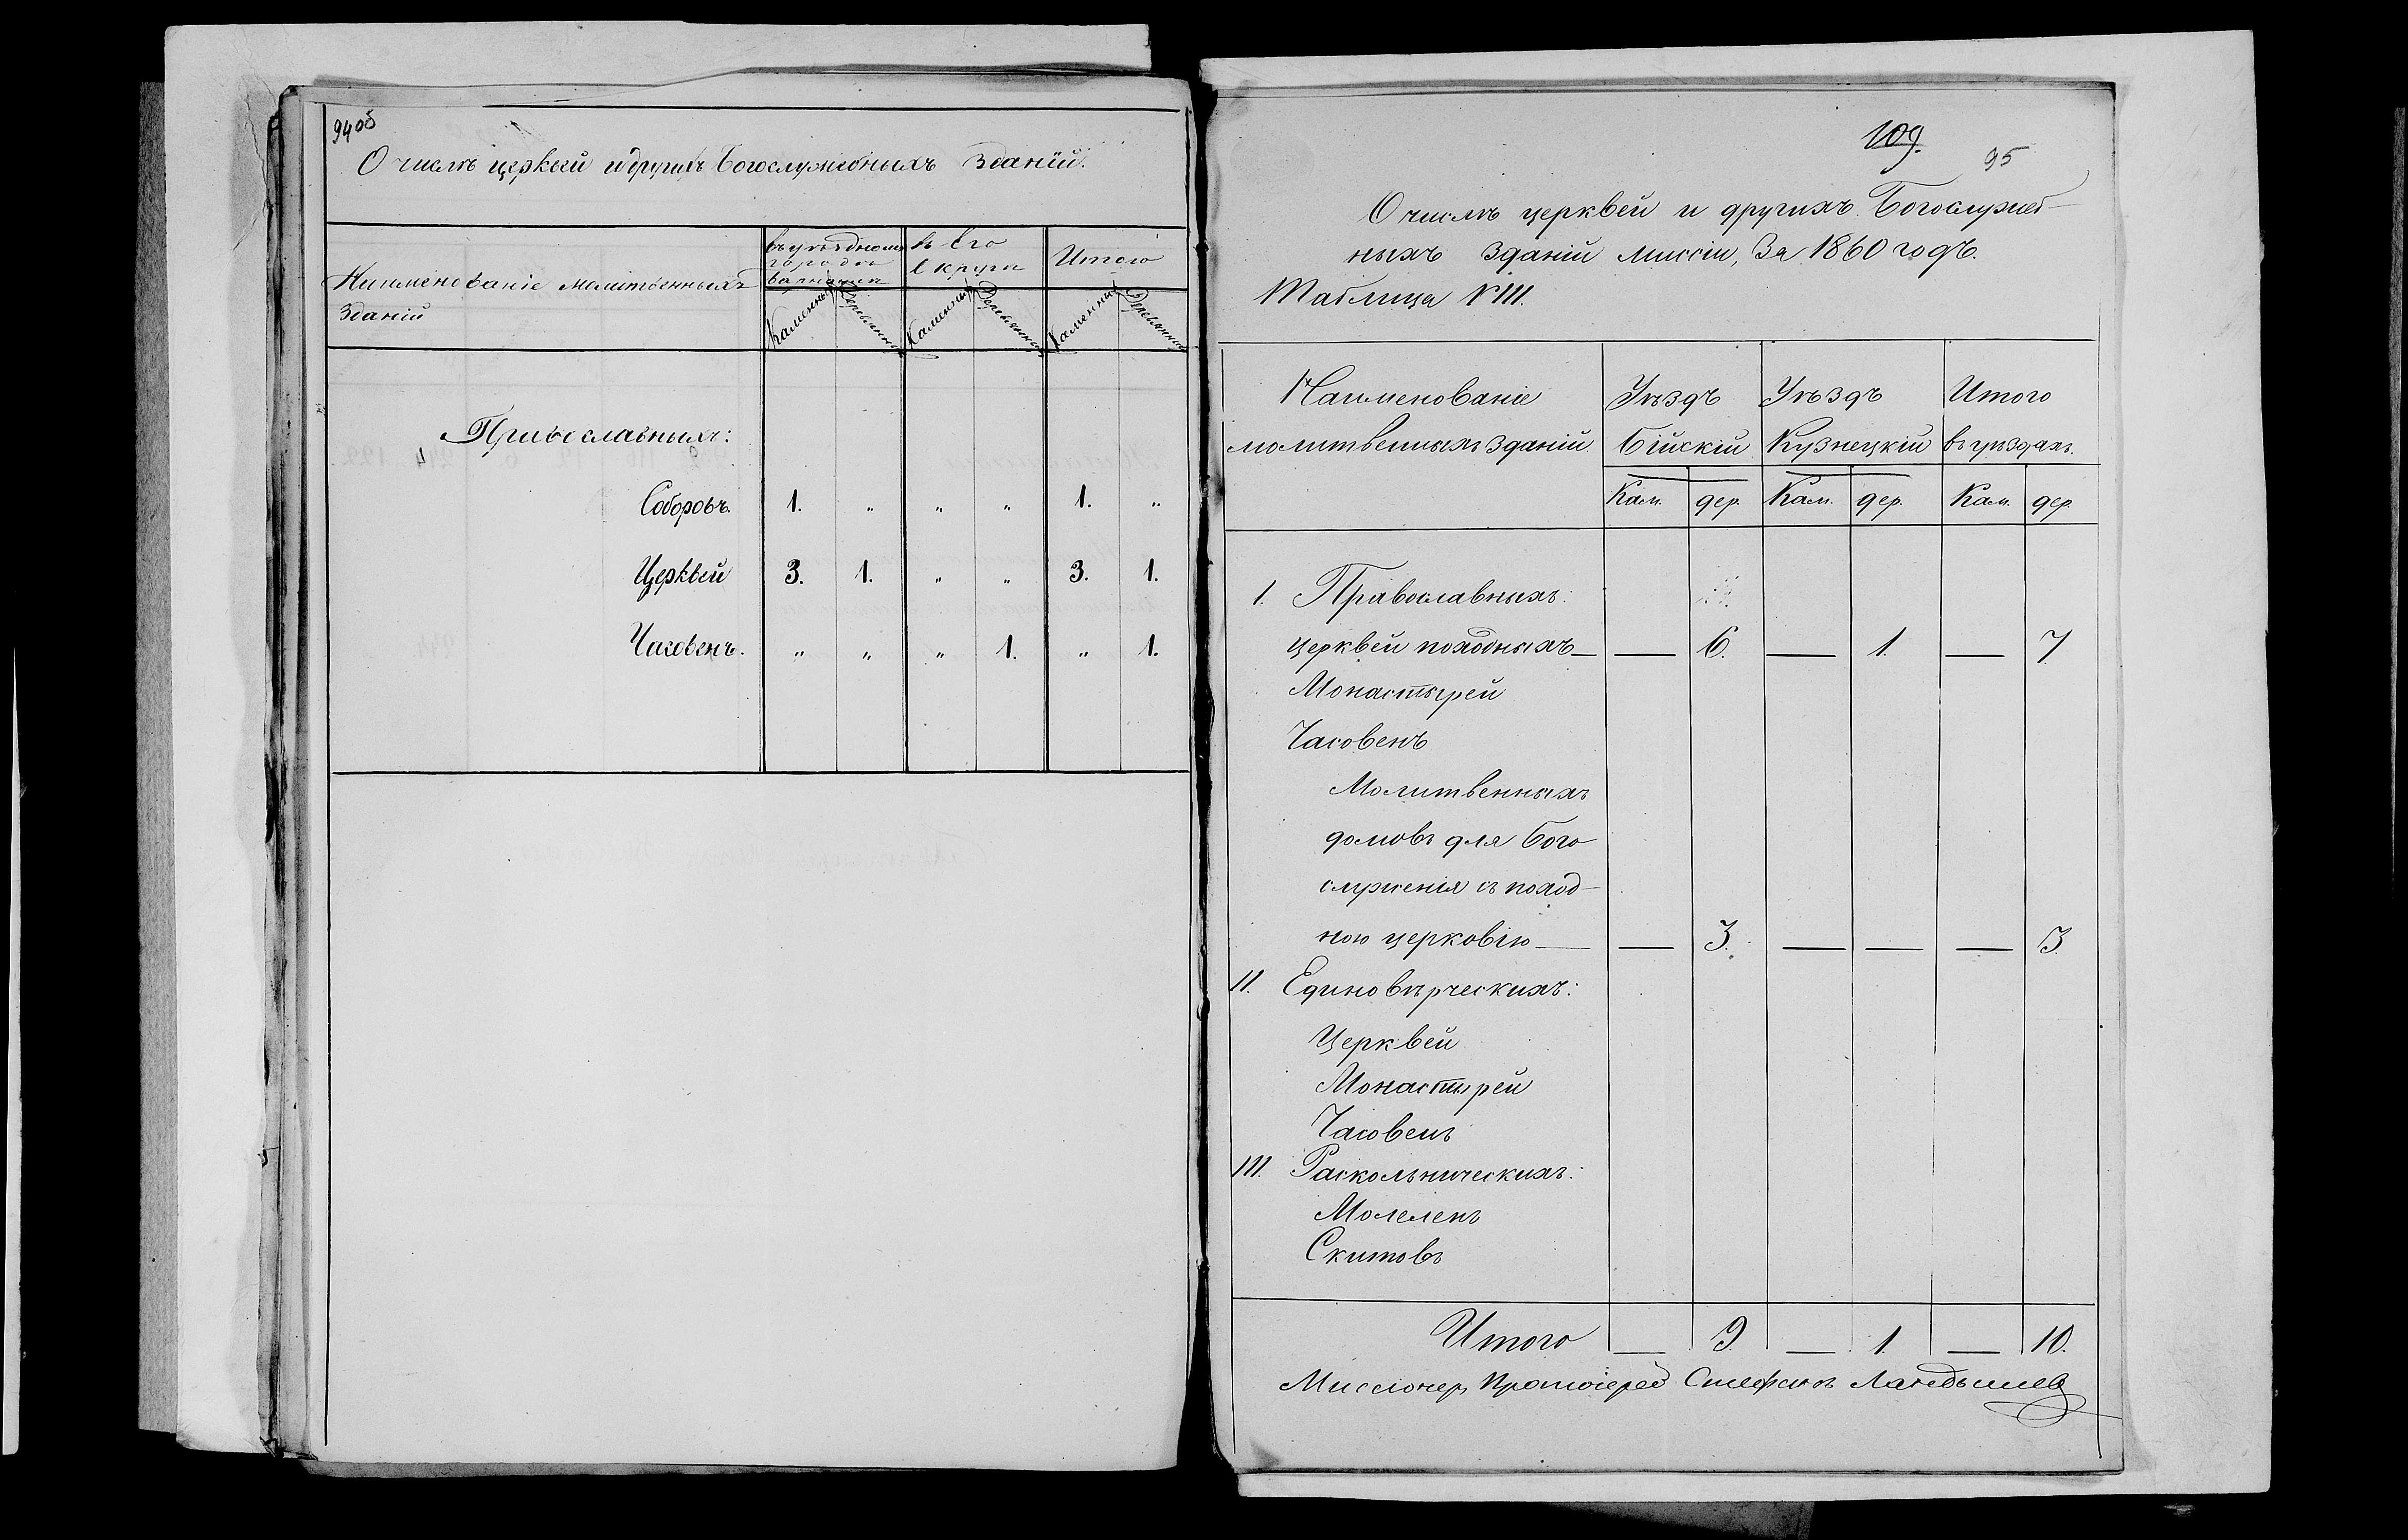 94об
О числѣ церквей и другихъ Богослужебныхъ зданій.
Наименованіе молитвенныхъ
зданій
въ уѣздномъ
городѣ
Барнаулѣ
в его
округѣ
Итого
Каменныхъ Деревянныхъ Каменныхъ Деревянныхъ Каменныхъ Деревянныхъ
Православныхъ:
Соборовъ. 1. „ „ „ 1. „
Церквей 3. 1. „ „ 3. 1.
Часовенъ. „ „ „ 1. „ 1.
109.
95
О числѣ церквей и другихъ Богослужеб-
ныхъ зданій миссіи, за 1860 годъ.
Таблица № III.
Наименованіе Уѣздъ Уѣздъ Итого
молитвенныхъ зданій. Бійскій Кузнецкій въ уѣздахъ.
Кам. дер. Кам. дер. Кам. дер.
I. Православныхъ:
церквей походныхъ — — 6. — 1. — 7.
Монастырей
Часовенъ
Молитвенныхъ
домовъ для Бого
служенія съ поход-
ною церковію — — 3. — — — 3.
II. Единовѣрческихъ:
Церквей
Монастырей
Часовенъ
III. Раскольническихъ:
Молеленъ
Скитовъ
Итого — 9. — 1. — 10.
Миссіонер, Протоіерей Стефанъ Ландышевъ